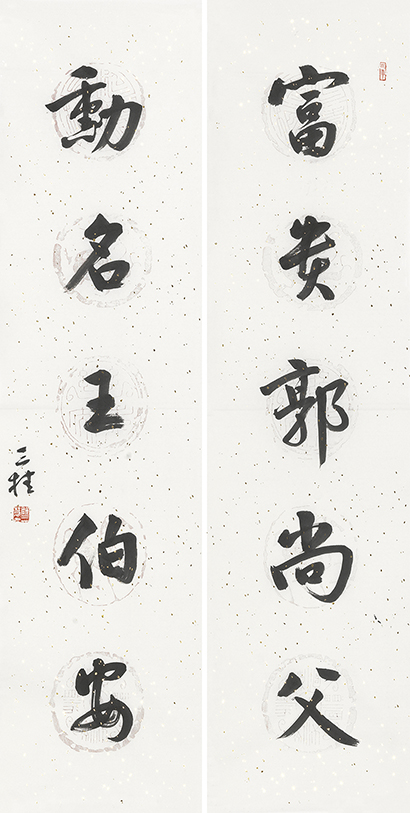 富貴郭尚父
勳名王伯安
三桂